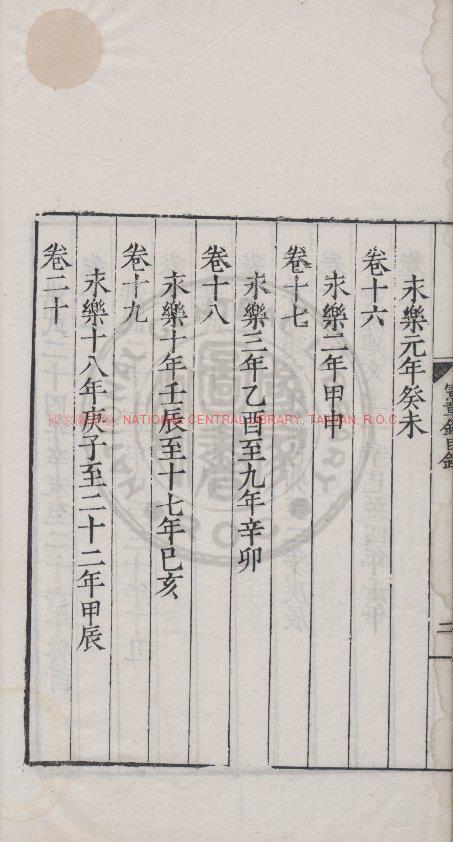 憲章錄目錄
二
永樂元年癸未
卷十六
永樂二年甲申
卷十七
永樂三年乙酉至九年辛卯
卷十八
永樂十年壬辰至十七年己亥
卷十九
永樂十八年庚子至二十二年甲辰
卷二十
國家圖書館, NATIONAL CENTRAL LIBRARY, TAIWAN, R.O.C